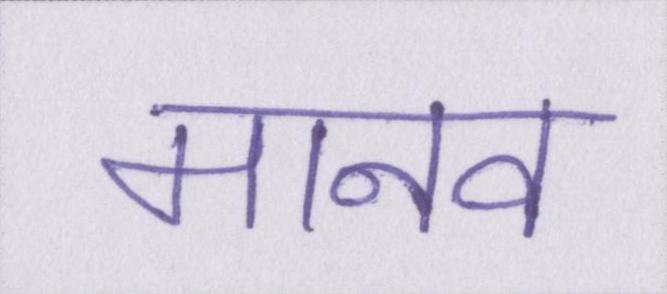 मानव